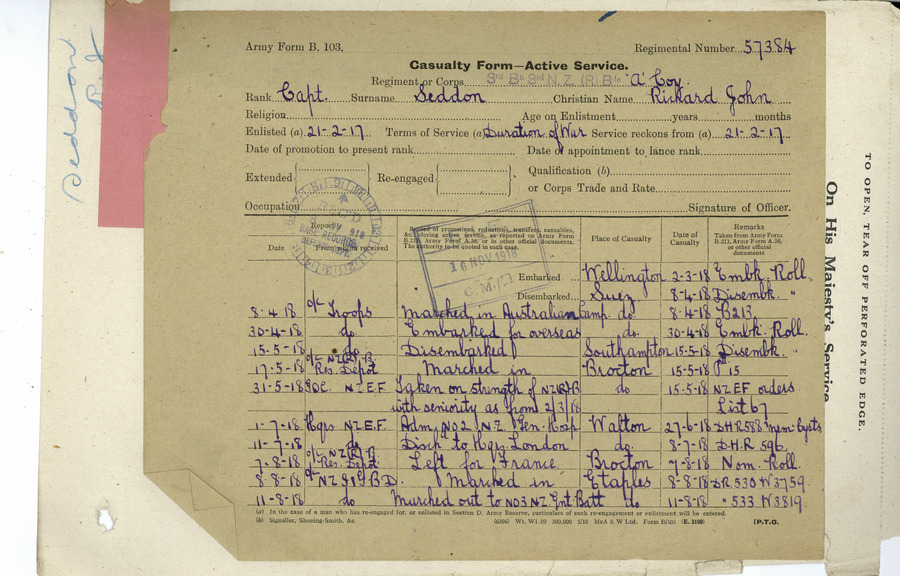 Seddon
Army Form B. 103.
Regimental Number 57384
Casualty Form—Active Service.
Regiment or Corps 3rd Bn 3rd N.Z. (R) Bde 'A' Coy.
Rank Capt. Surname Seddon Christian Name Richard John
Religion Age on Enlistment years months
Enlisted (a) 21-2-17 Terms of Service (a) Duration of War Service reckons from (a) 21-2-17
Date of promotion to present rank Date of appointment to lance rank
Extended Re-engaged Qualification (b)
or Corps Trade and Rate
Occupation Signature of Officer.
BASE RECORDS
16 NOV 1918
Report
Date From whom received
Record of promotions, reductions, transfers, casualties,
&c., during active service, as reported on Army Form
B.213, Army Form A.36, or in other official documents.
The authority to be quoted in each case.
Place of Casualty
Date of Casualty
Remarks
Taken from Army Form
B.213, Army Form A.36,
or other official
documents
Embarked Wellington 2-3-18 Embk. Roll.
Disembarked Suez 8-4-18 Disembk. "
8-4-18 o/c Troops Marched in Australian Camp. do. 8-4-18 B213
30-4-18 do Embarked for overseas do. 30-4-18 Embk. Roll.
15-5-18 do Disembarked Southampton 15-5-18 Disembk. "
17-5-18 o/c NZ(R)B. Res. Depot Marched in Brocton 15-5-18 15
31-5-18 GOC. N.Z.E.F. Taken on strength of NZ(R)B do 15-5-18 NZEF orders
with seniority as from 2/3/18 List 67
1-7-18 Hqrs N.Z.E.F. Adm. No2 N.Z. Gen. Hosp Walton 27-6-18 D.H.R 588
11-7-18 do Disch to Hqrs London do. 8-7-18 D.H.R 596
7-8-18 o/c NZ(R)B Res. Depot Left for France Brocton 7-8-18 Nom. Roll.
8-8-18 o/c NZ I & G B D. Marched in Etaples 8-8-18 DR.530 W3759.
11-8-18 do Marched out to No3 NZ. Ent Batt do 11-8-18 " 533 W3819.
(a) In the case of a man who has re-engaged for, or enlisted in Section D. Army Reserve, particulars of such re-engagement or enlistment will be entered.
(b) Signaller, Shoeing-Smith, &c. (6306) Wt. W1 89 300,000 5/18 McA & W Ltd. Form B/103 (E. 3109) [P.T.O.
On His Majesty's Service
TO OPEN, TEAR OFF PERFORATED EDGE.